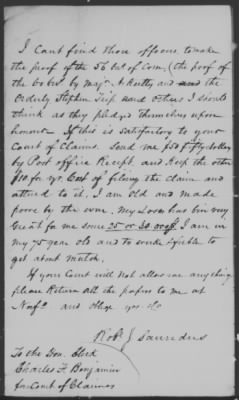 I cant find those officers, to make
the proof of the 56 bbl of Corn. (the proof of
the 60 bbl by Majr. A. Reitty and
Orderly Stephen Tip and others I should
think as they pledged themselves upon
honour. If this is satisfactory to your
Court of Claims. Send me $50 fifty dollars
by Post office Receipt. and keep the other
$10 for yr. Cost of filing the claim and
attend to it. I am old and made
poore by the war. My Loss has bin very
Great for me some 25 or 30 000$. I am in
my 75 year old and to enable to
get about mutch.
If your Court will not allow me anything
please Return all the papers to me at
Norfo. and oblige yrs. &c
Robt. J. Saunders
To the Hon. Clerk
Charles F. Benjamin
for Court of Claims